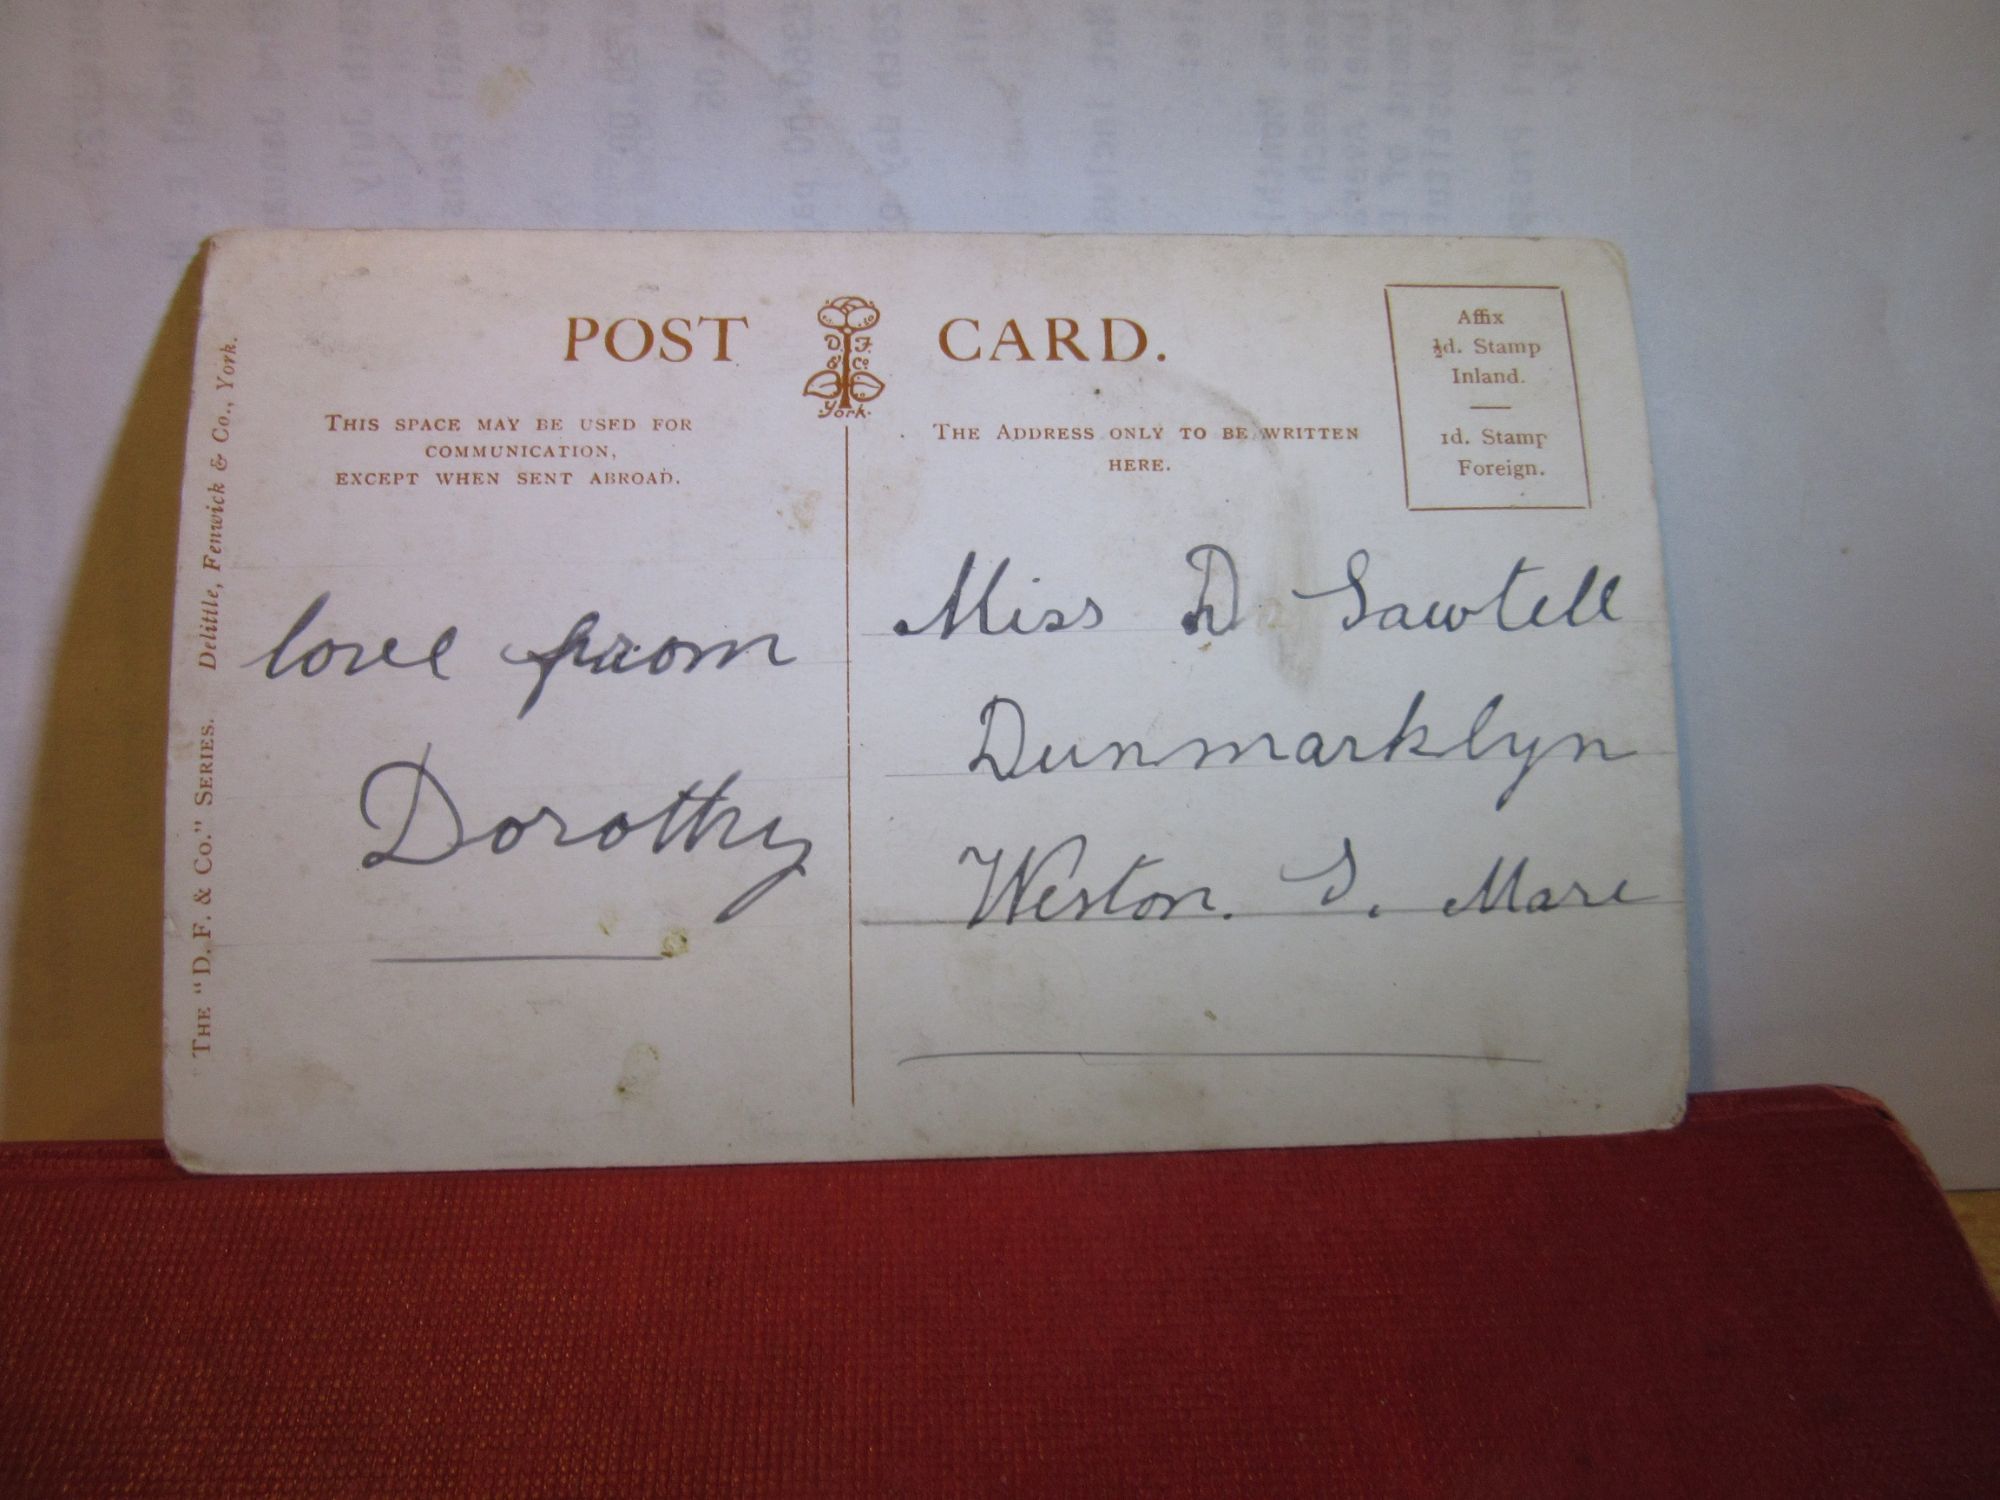 POST CARD.
D. F.
& Co
York.
THIS SPACE MAY BE USED FOR
COMMUNICATION,
EXCEPT WHEN SENT ABROAD.
THE ADDRESS ONLY TO BE WRITTEN
HERE.
Affix
½d. Stamp
Inland.
1d. Stamp
Foreign.
THE "D. F. & CO." SERIES. Delittle, Fenwick & Co., York.
love from
Dorothy
Miss D Sawtell
Dunmarklyn
Weston. S. Mare